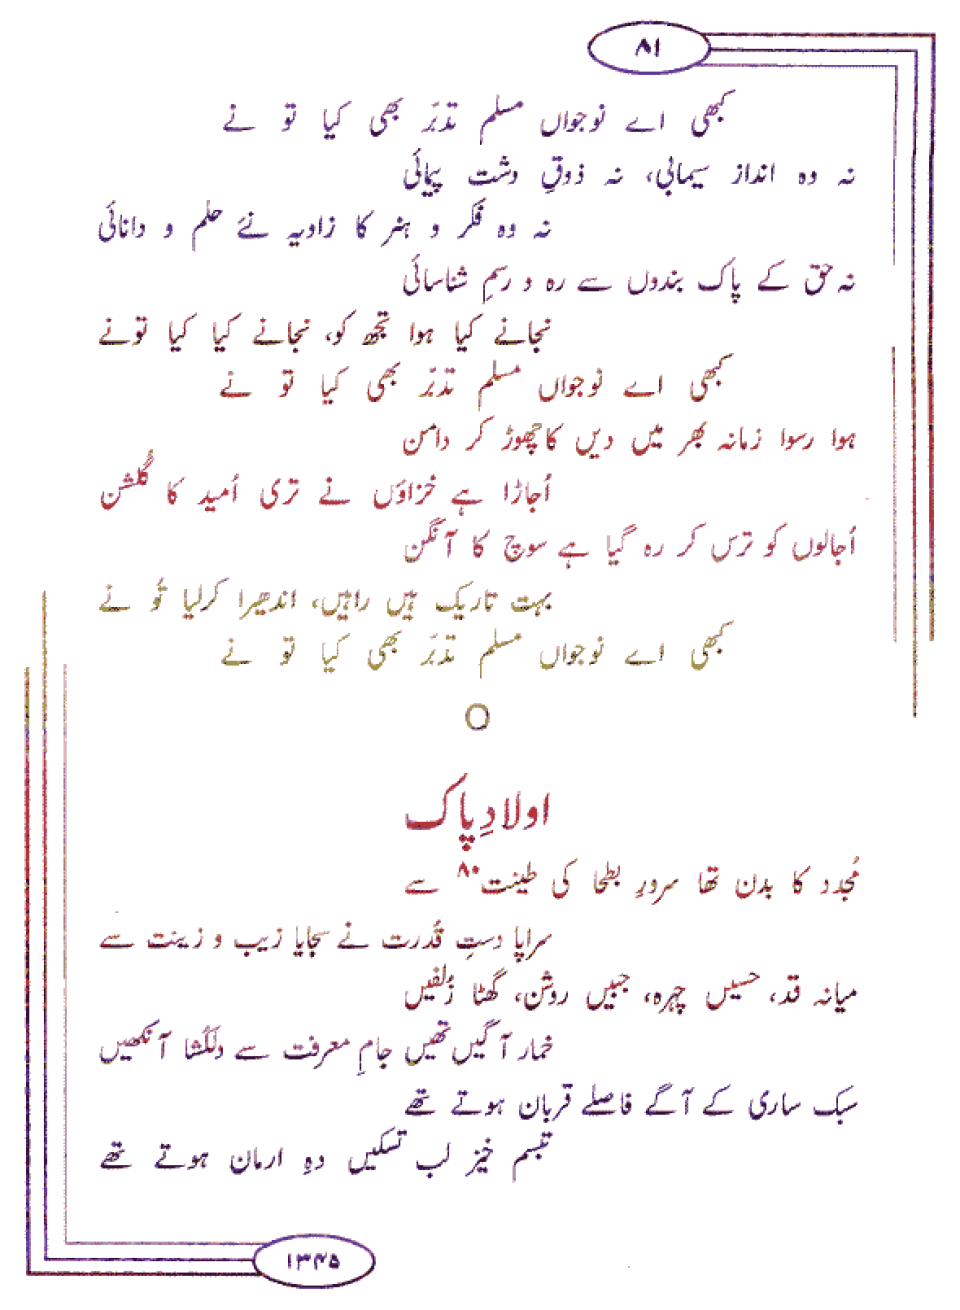 ۸۱
کبھی اے نوجواں مسلم تدبّر بھی کیا تو نے
نہ وہ انداز سیمابی، نہ ذوقِ دشت پیمائی
نہ وہ فکر و ہنر کا زاویہ نئے حلم و دانائی
نہ حق کے پاک بندوں سے رہ و رسمِ شناسائی
نجانے کیا ہوا تجھ کو، نجانے کیا کیا کیا تونے
کبھی اے نوجواں مسلم تدبّر بھی کیا تو نے
ہوا رسوا زمانہ بھر میں دیں کا چھوڑ کر دامن
اُجاڑا ہے خزاؤں نے تری اُمید کا گُلشن
اُجالوں کو ترس کر رہ گیا ہے سوچ کا آنگن
بہت تاریک ہیں راہیں، اندھیرا کرلیا تُو نے
کبھی اے نوجواں مسلم تدبّر بھی کیا تو نے
اولادِ پاک
مُجدد کا بدن تھا سرورِ بطحا کی طینت۸۰ سے
سراپا دستِ قُدرت نے سجایا زیب و زینت سے
میانہ قد، حسیں چہرہ، جبیں روشن، گھٹا زُلفیں
خمار آگیں تھیں جامِ معرفت سے دلکُشا آنکھیں
سبک ساری کے آگے فاصلے قربان ہوتے تھے
تبسم خیز لب تسکیں دہِ ارمان ہوتے تھے
۱۳۴۵